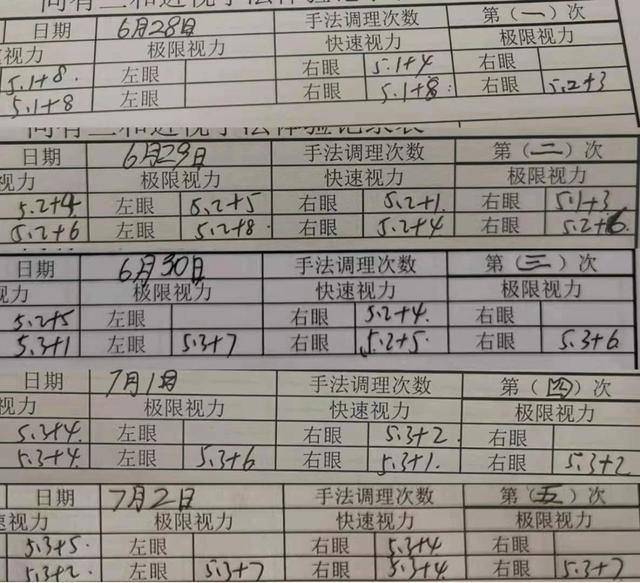 日期 6月28日 手法调理次数 第（一）次
视力 极限视力 快速视力 极限视力
5.1+8. 左眼 右眼 5.1+4 右眼
5.1+8 左眼 右眼 5.1+8. 右眼 5.2+3
日期 6月29日 手法调理次数 第（二）次
视力 极限视力 快速视力 极限视力
5.2+4. 左眼 5.2+5 右眼 5.2+1. 右眼 5.1+3
5.2+6 左眼 5.2+8. 右眼 5.2+4 右眼 5.2+6.
日期 6月30日 手法调理次数 第（三）次
视力 极限视力 快速视力 极限视力
5.2+5 左眼 右眼 5.2+4. 右眼
5.3+1 左眼 5.3+7 右眼 5.2+5. 右眼 5.3+6
日期 7月1日 手法调理次数 第（四）次
视力 极限视力 快速视力 极限视力
5.3+4. 左眼 右眼 5.3+2. 右眼
5.3+4. 左眼 5.3+6 右眼 5.3+1. 右眼 5.3+2
日期 7月2日 手法调理次数 第（五）次
速视力 极限视力 快速视力 极限视力
5.3+5. 左眼 右眼 5.3+4 右眼
5.3+2. 左眼 5.3+7 右眼 5.3+4 右眼 5.3+7